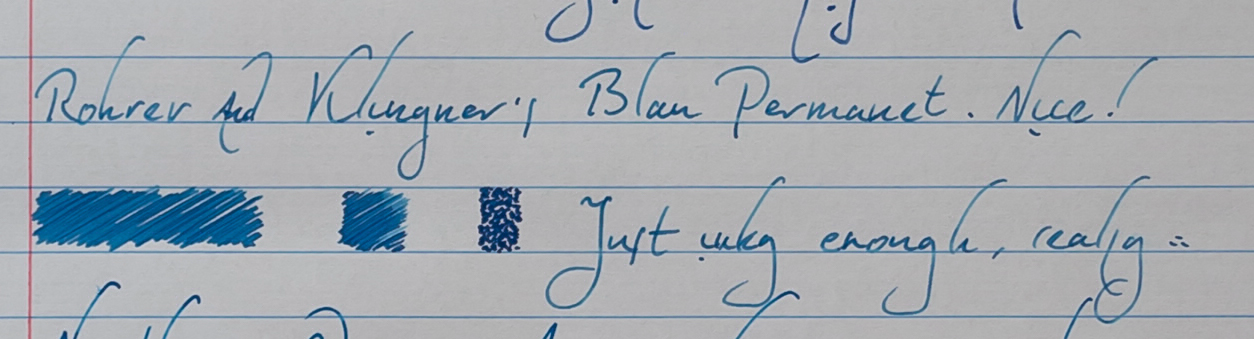 Rohrer And Klingner's Blau Permanet. Nice!
Just inky enough, really